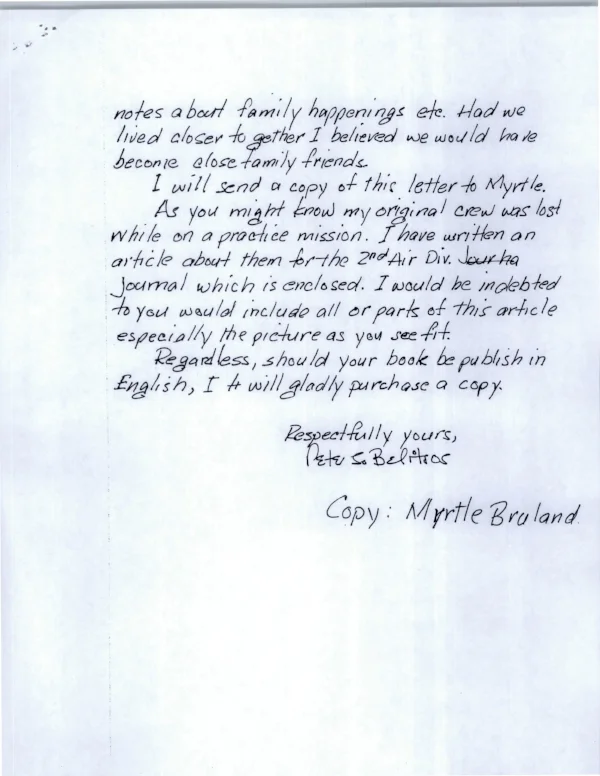 notes about family happenings etc. Had we
lived closer to gether I believed we would have
become close family friends.
I will send a copy of this letter to Myrtle.
As you might know my original crew was lost
while on a practice mission. I have written an
article about them for the 2nd Air Div. Jourha
Journal which is enclosed. I would be indebted
to you would include all or parts of this article
especially the picture as you see fit.
Regardless, should your book be publish in
English, I will gladly purchase a copy.
Respectfully yours,
Pete S. Belitsos
Copy: Myrtle Bruland